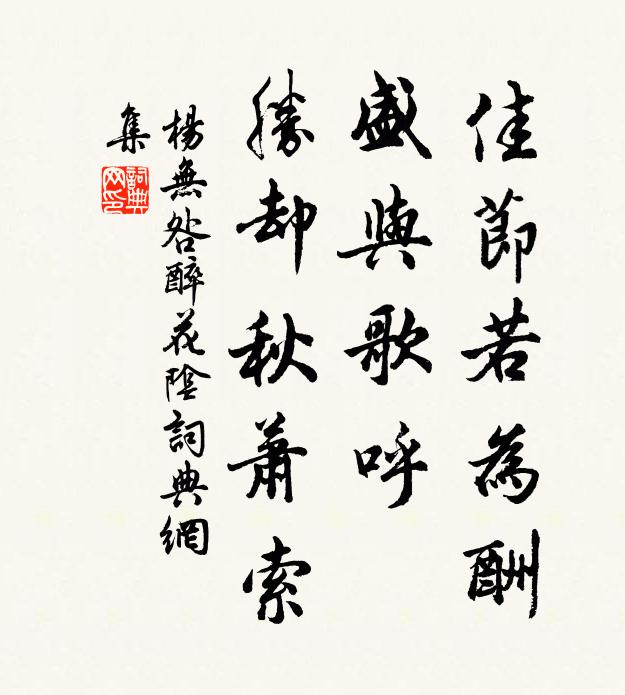 佳節若為酬
盛與歌呼
勝却秋蕭索
楊無咎醉花陰詞典網
集
詞典網印